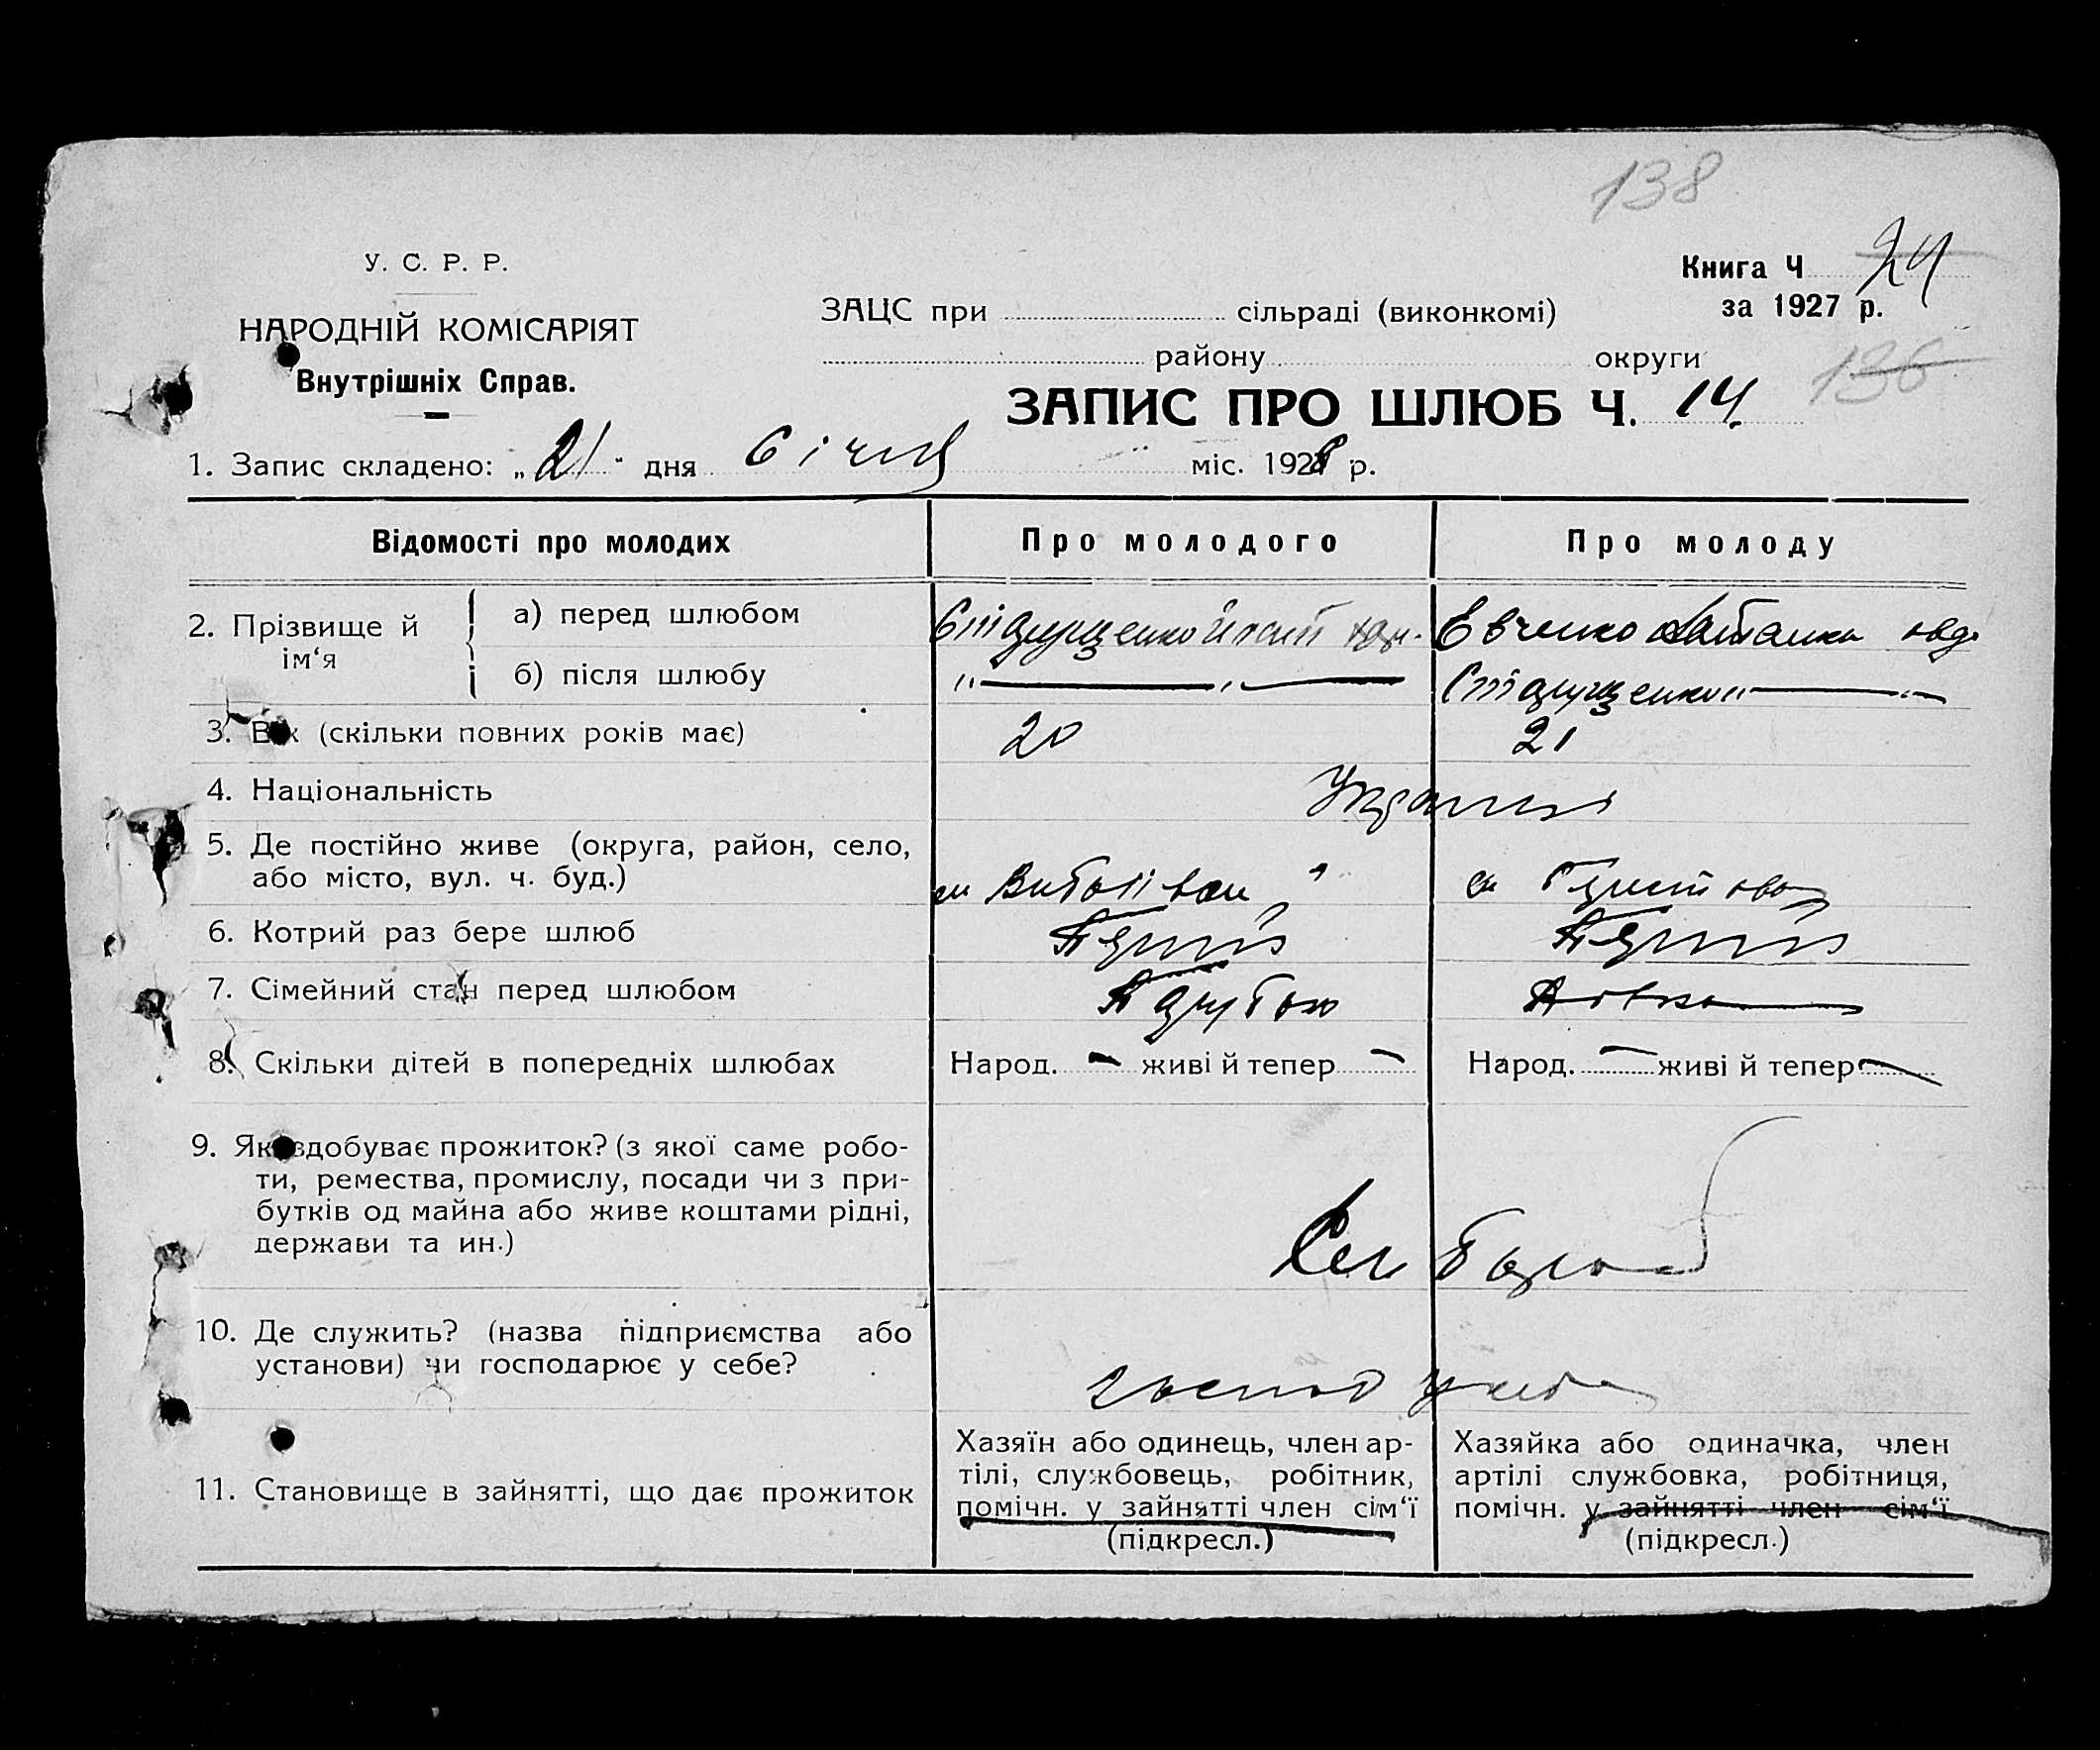 138
У. С. Р. Р.
НАРОДНІЙ КОМІСАРІЯТ
Внутрішніх Справ.
Книга Ч 24
за 1927 р.
ЗАЦС при сільраді (виконкомі)
району округи
136
ЗАПИС ПРО ШЛЮБ Ч. 14.
1. Запис складено: „21" дня Січня міс. 1928 р.
Відомості про молодих Про молодого Про молоду
2. Прізвище й ім‘я
а) перед шлюбом Старущенко Євченко
б) після шлюбу " — " — Старущенко " — " —
3. Вік (скільки повних років має) 20 21
4. Національність Українці
5. Де постійно живе (округа, район, село,
або місто, вул. ч. буд.)
6. Котрий раз бере шлюб Перший Перший
7. Сімейний стан перед шлюбом Парубок Дівка
8. Скільки дітей в попередніх шлюбах Народ. — живі й тепер — Народ. — живі й тепер —
9. Як здобуває прожиток? (з якої саме робо-
ти, ремества, промислу, посади чи з при-
бутків од майна або живе коштами рідні,
держави та ин.)
10. Де служить? (назва підприємства або
установи) чи господарює у себе?
господ у себе
11. Становище в зайнятті, що дає прожиток
Хазяїн або одинець, член ар-
тілі, службовець, робітник,
помічн. у зайнятті член сім‘ї
(підкресл.)
Хазяйка або одиначка, член
артілі службовка, робітниця,
помічн. у зайнятті член сім‘ї
(підкресл.)